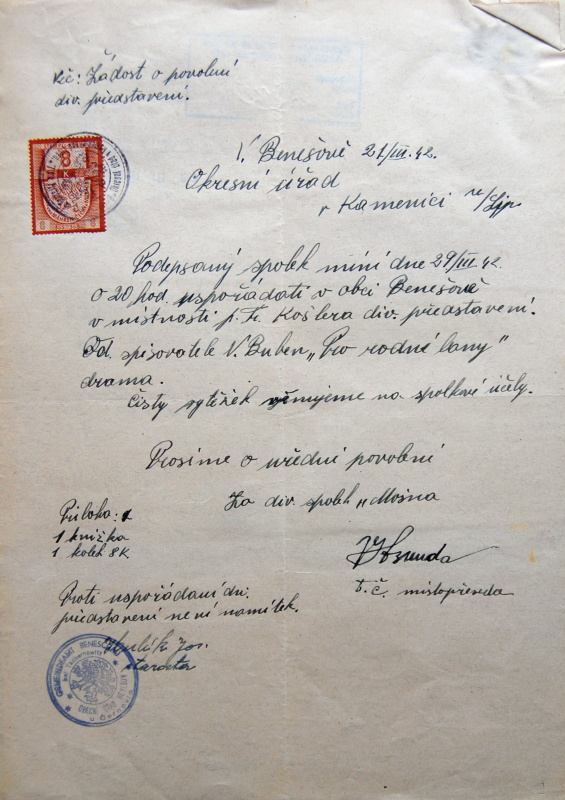 Vč: Žádost o povolení
div. představení.
V. Benešově 21/III. 42.
Okresní úřad
v Kamenici n/Lip.
8
K
Podepsaný spolek míní dne 29/III 42.
o 20 hod. uspořádati v obci Benešově
v místnosti p. Fr. Košlera div. představení.
Od spisovatele V. Buben „Pro rodné lany"
drama.
Čistý výtěžek věnujeme na spolkové účely.
Prosíme o úřední povolení
Za div. spolek „Mošna
Příloha:
1 knížka
1 kolek 8K.
t. č. místopředseda
Proti uspořádání div.
představení není námitek.
Jos.
starosta
GEMEINDEAMT BENESCHAU
OBECNÍ ÚŘAD